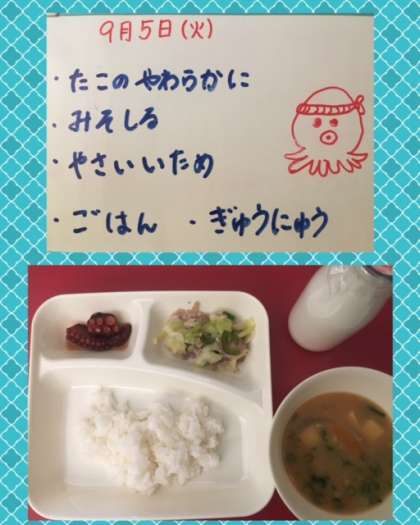 9月5日(火)
・たこのやわらかに
・みそしる
・やさいいため
・ごはん ・ぎゅうにゅう